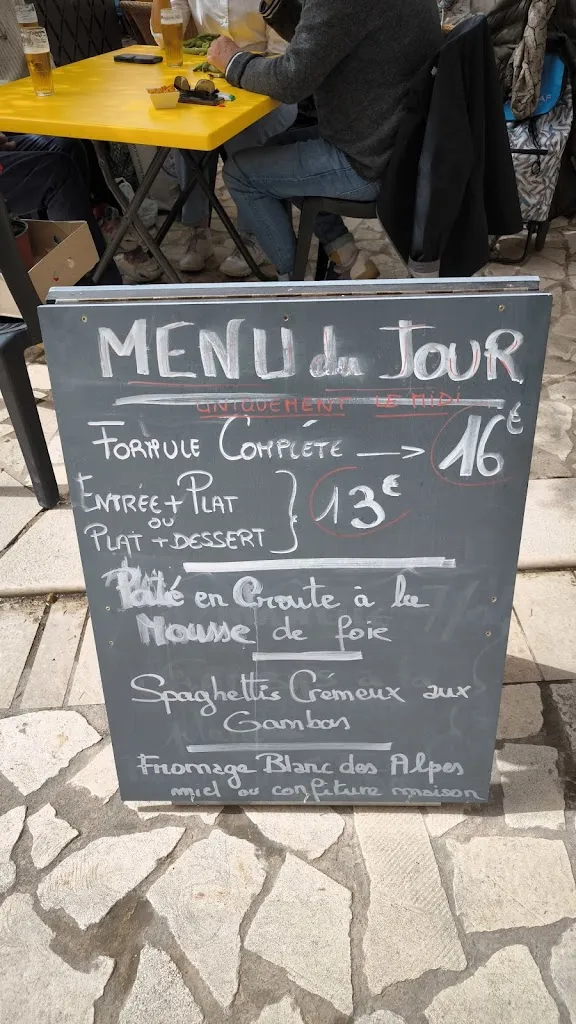 MENU du JOUR
UNIQUEMENT LE MIDI
FORMULE COMPLÉTE → 16€
ENTRÉE + PLAT
ou
PLAT + DESSERT } 13€
Paté en Croute à la
Mousse de foie
Spaghettis Crémeux aux
Gambas
Fromage Blanc des Alpes
miel ou confiture maison